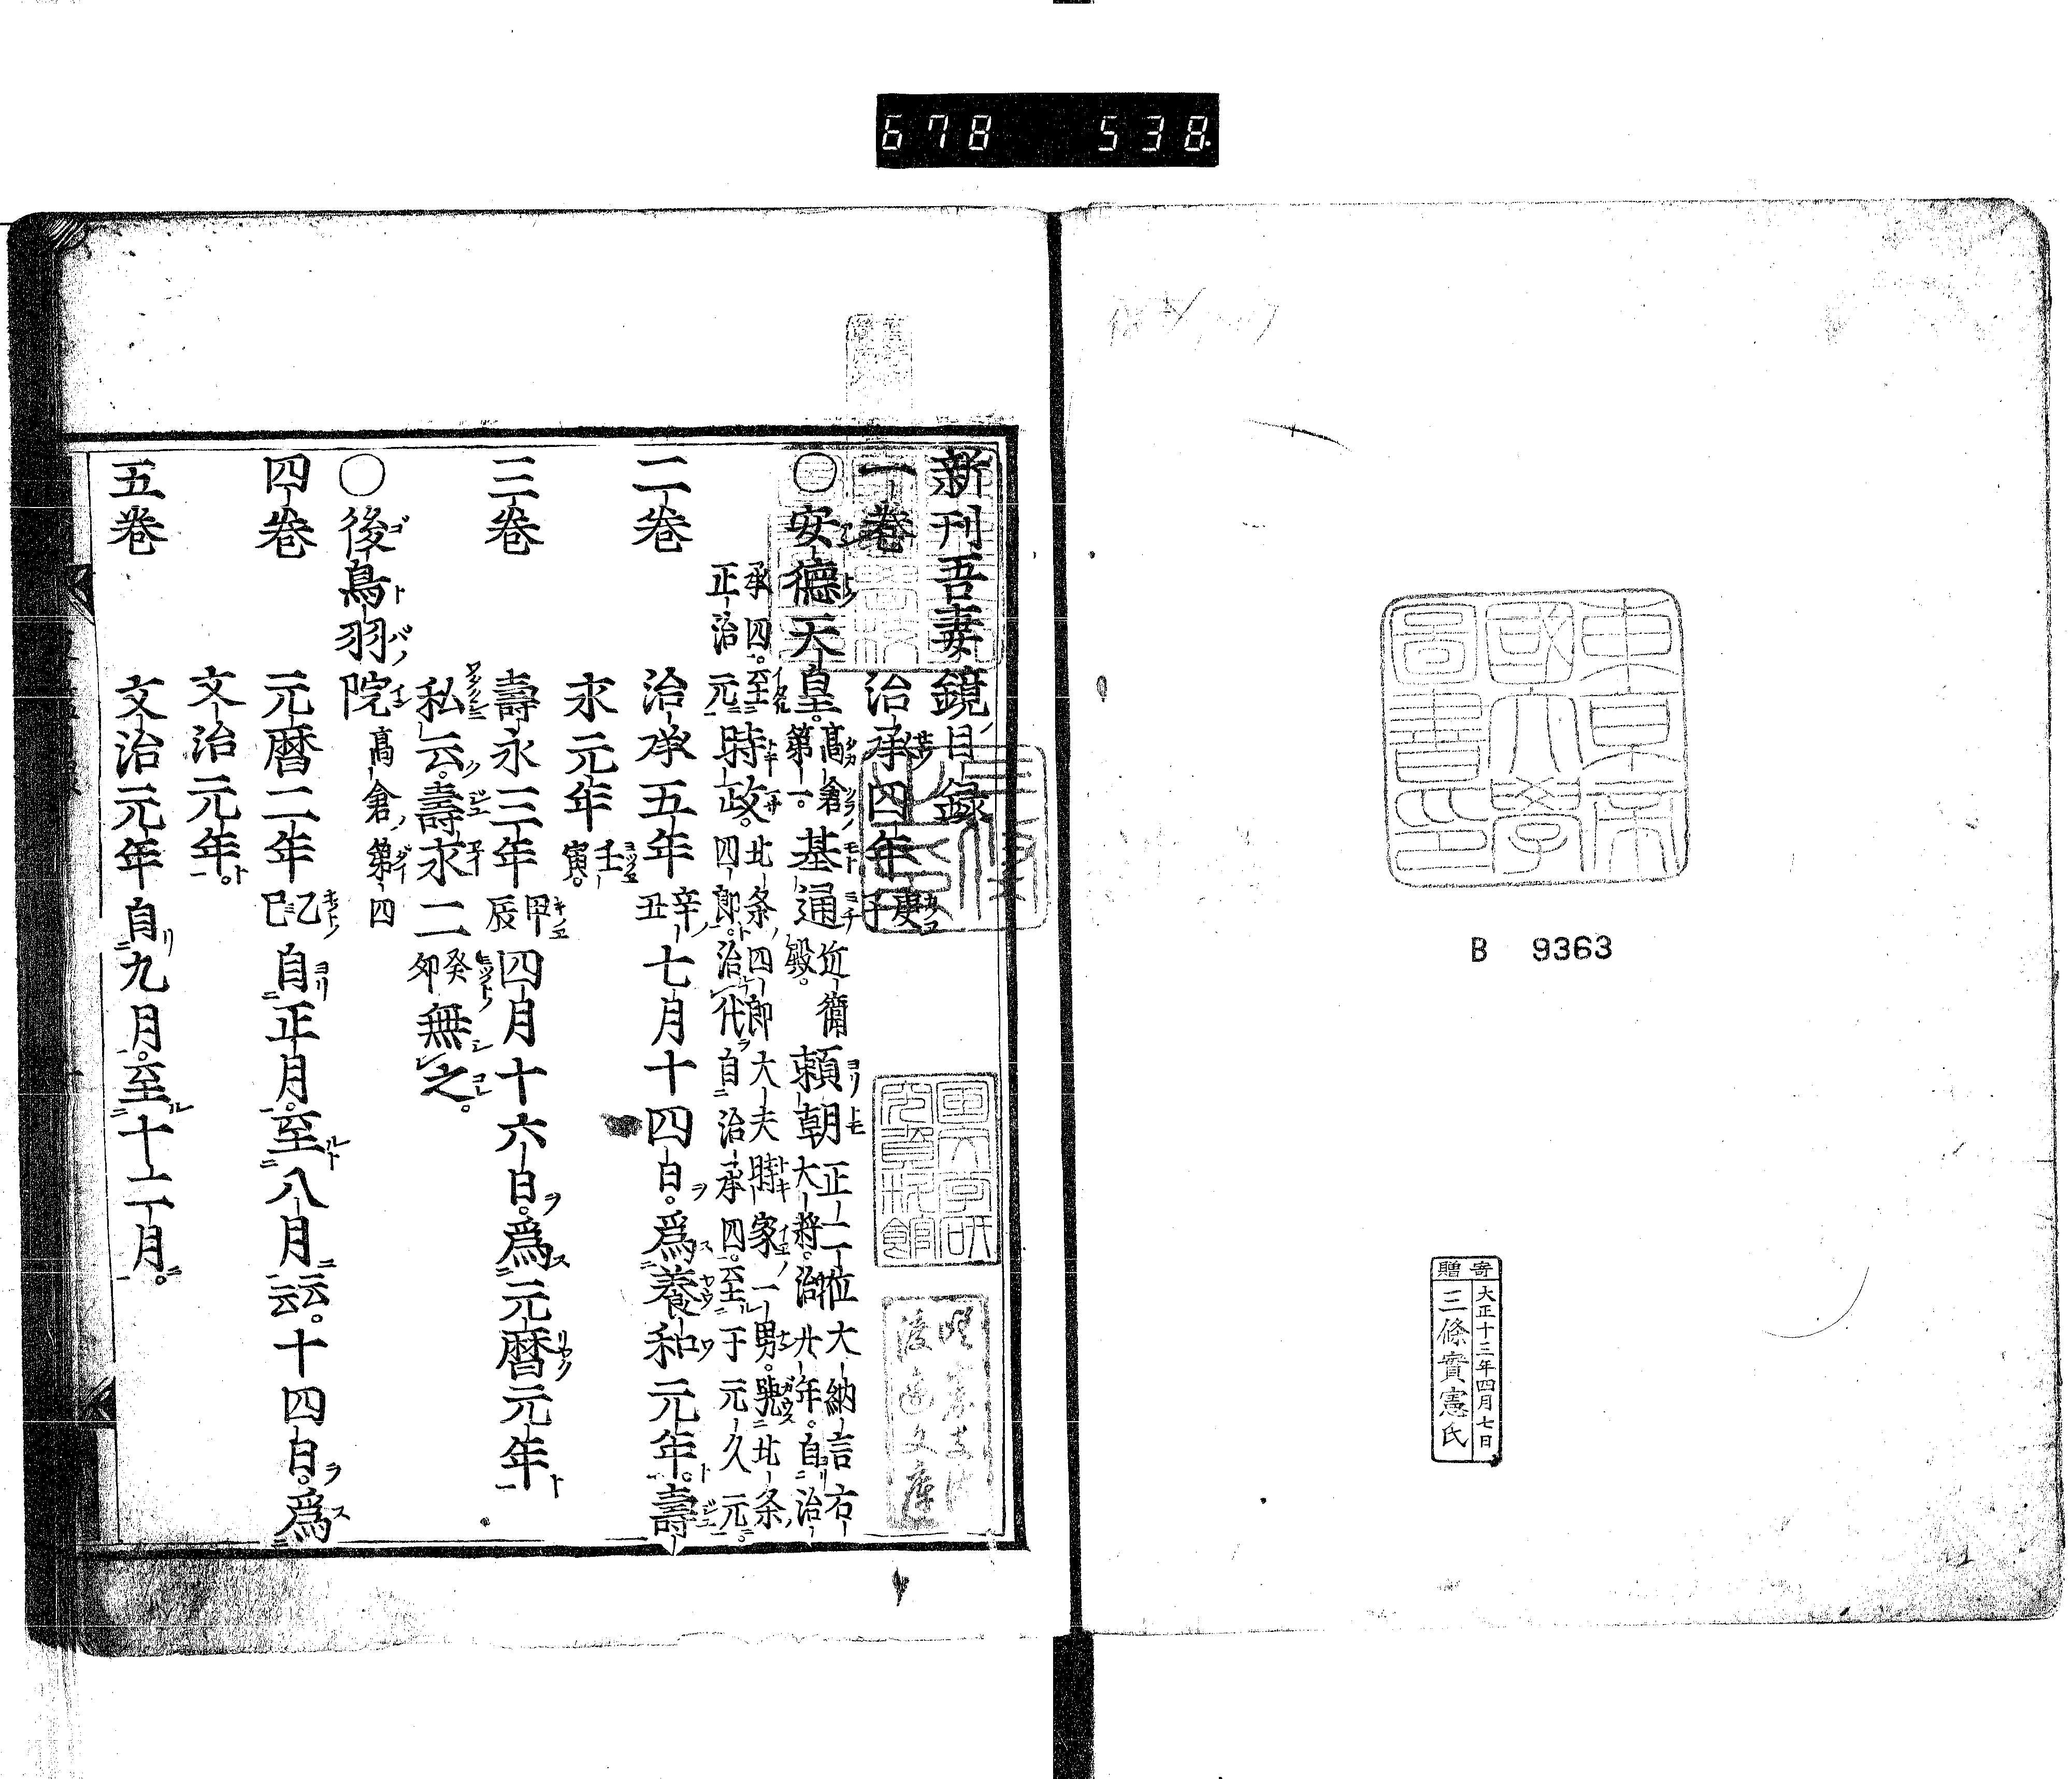 678 538
東京帝
國大學
圖書印
B 9363
寄贈
大正十三年四月七日
三條實憲氏
新刊吾妻鏡目録
一巻 治承四年庚子
〇安德天皇。高倉第一。基通近衛殿。頼朝正二位大納言右大将。治廿年。自治
承四。至正治元時政。北条四郎大夫時家一男。號北条四郎。治代自治承四。至于元久元。
二巻 治承五年辛丑七月十四日。爲養和元年。壽
永元年壬寅。
三巻 壽永三年甲辰四月十六日。爲元暦元年
私云。壽永二癸卯無之。
〇後鳥羽院高倉第四
四巻 元暦二年乙巳自正月。至八月云云。十四日。爲
文治元年。
五巻 文治元年自九月。至十二月。
国文学研
究資料館
渡邊文庫